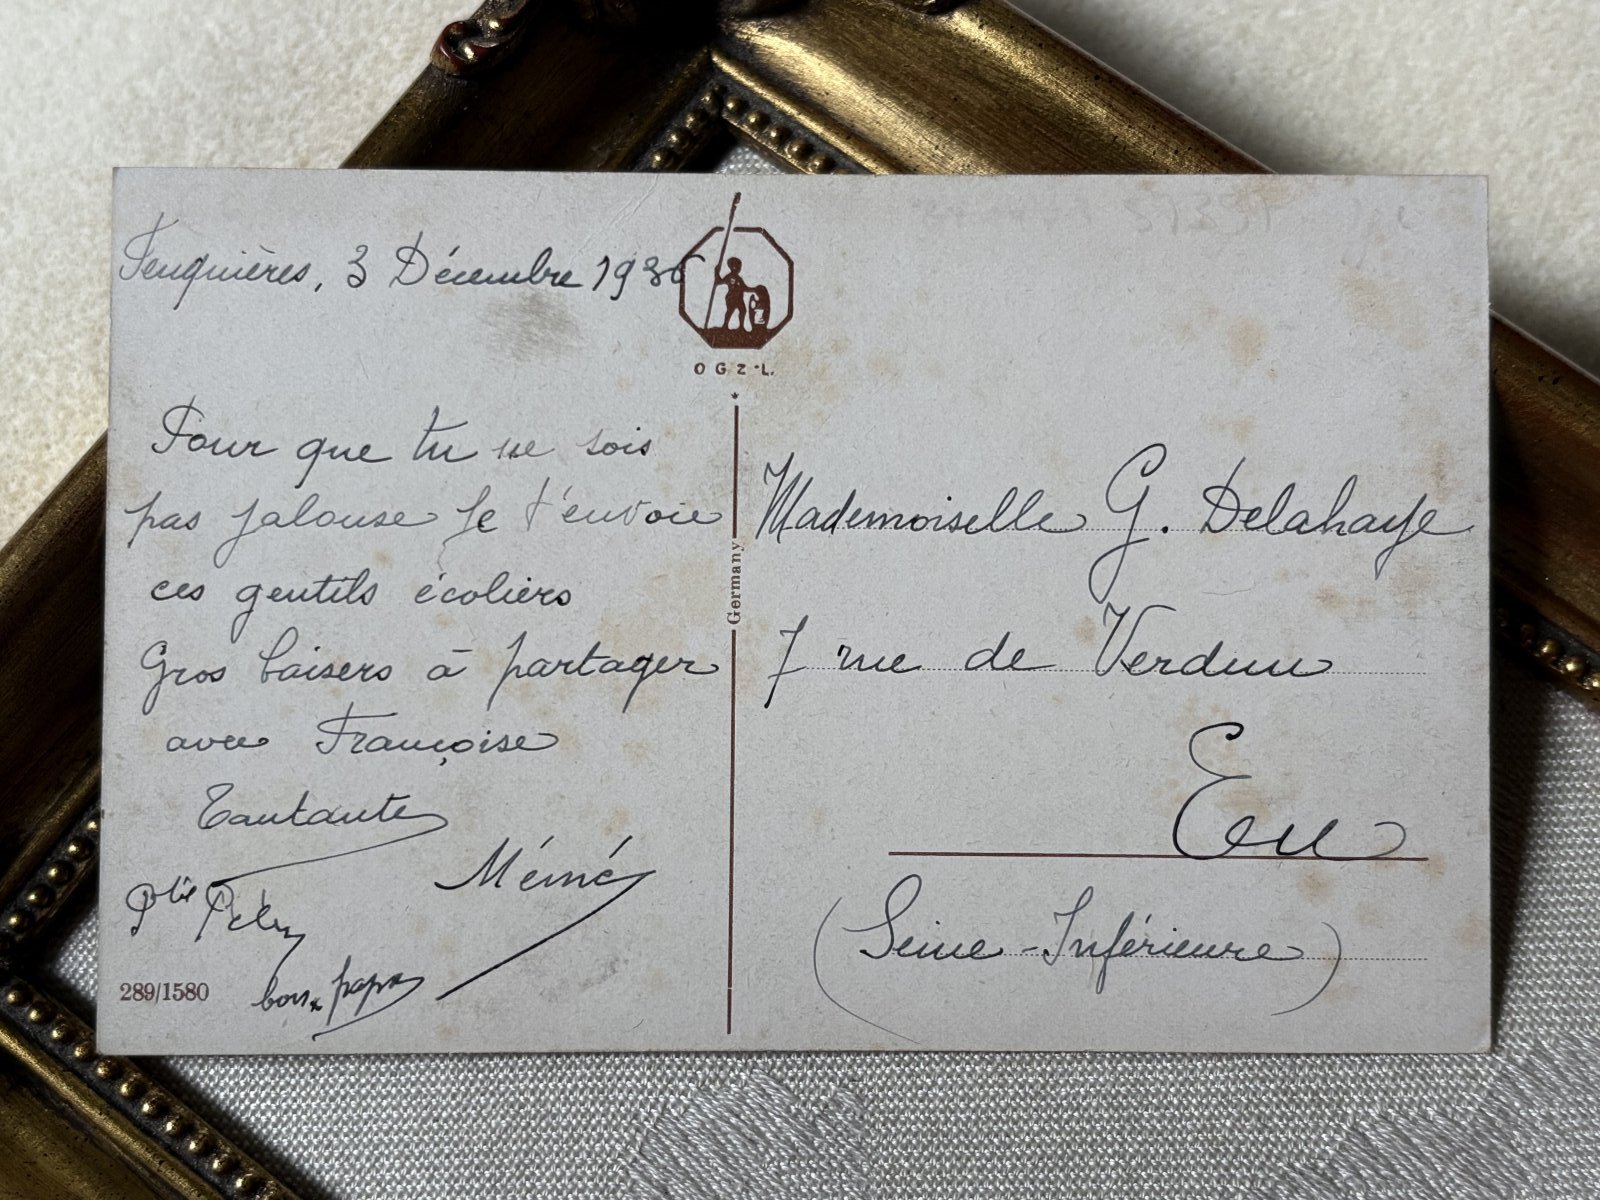 Feuquières, 3 Décembre 1936
O G Z-L.
Pour que tu ne sois
pas jalouse je t'envoie
ces gentils écoliers
Gros baisers à partager
avec Françoise
Tantante
Mémé
bon papa
289/1580
Germany
Mademoiselle G. Delahaye
7 rue de Verdun
Eu
(Seine-Inférieure)